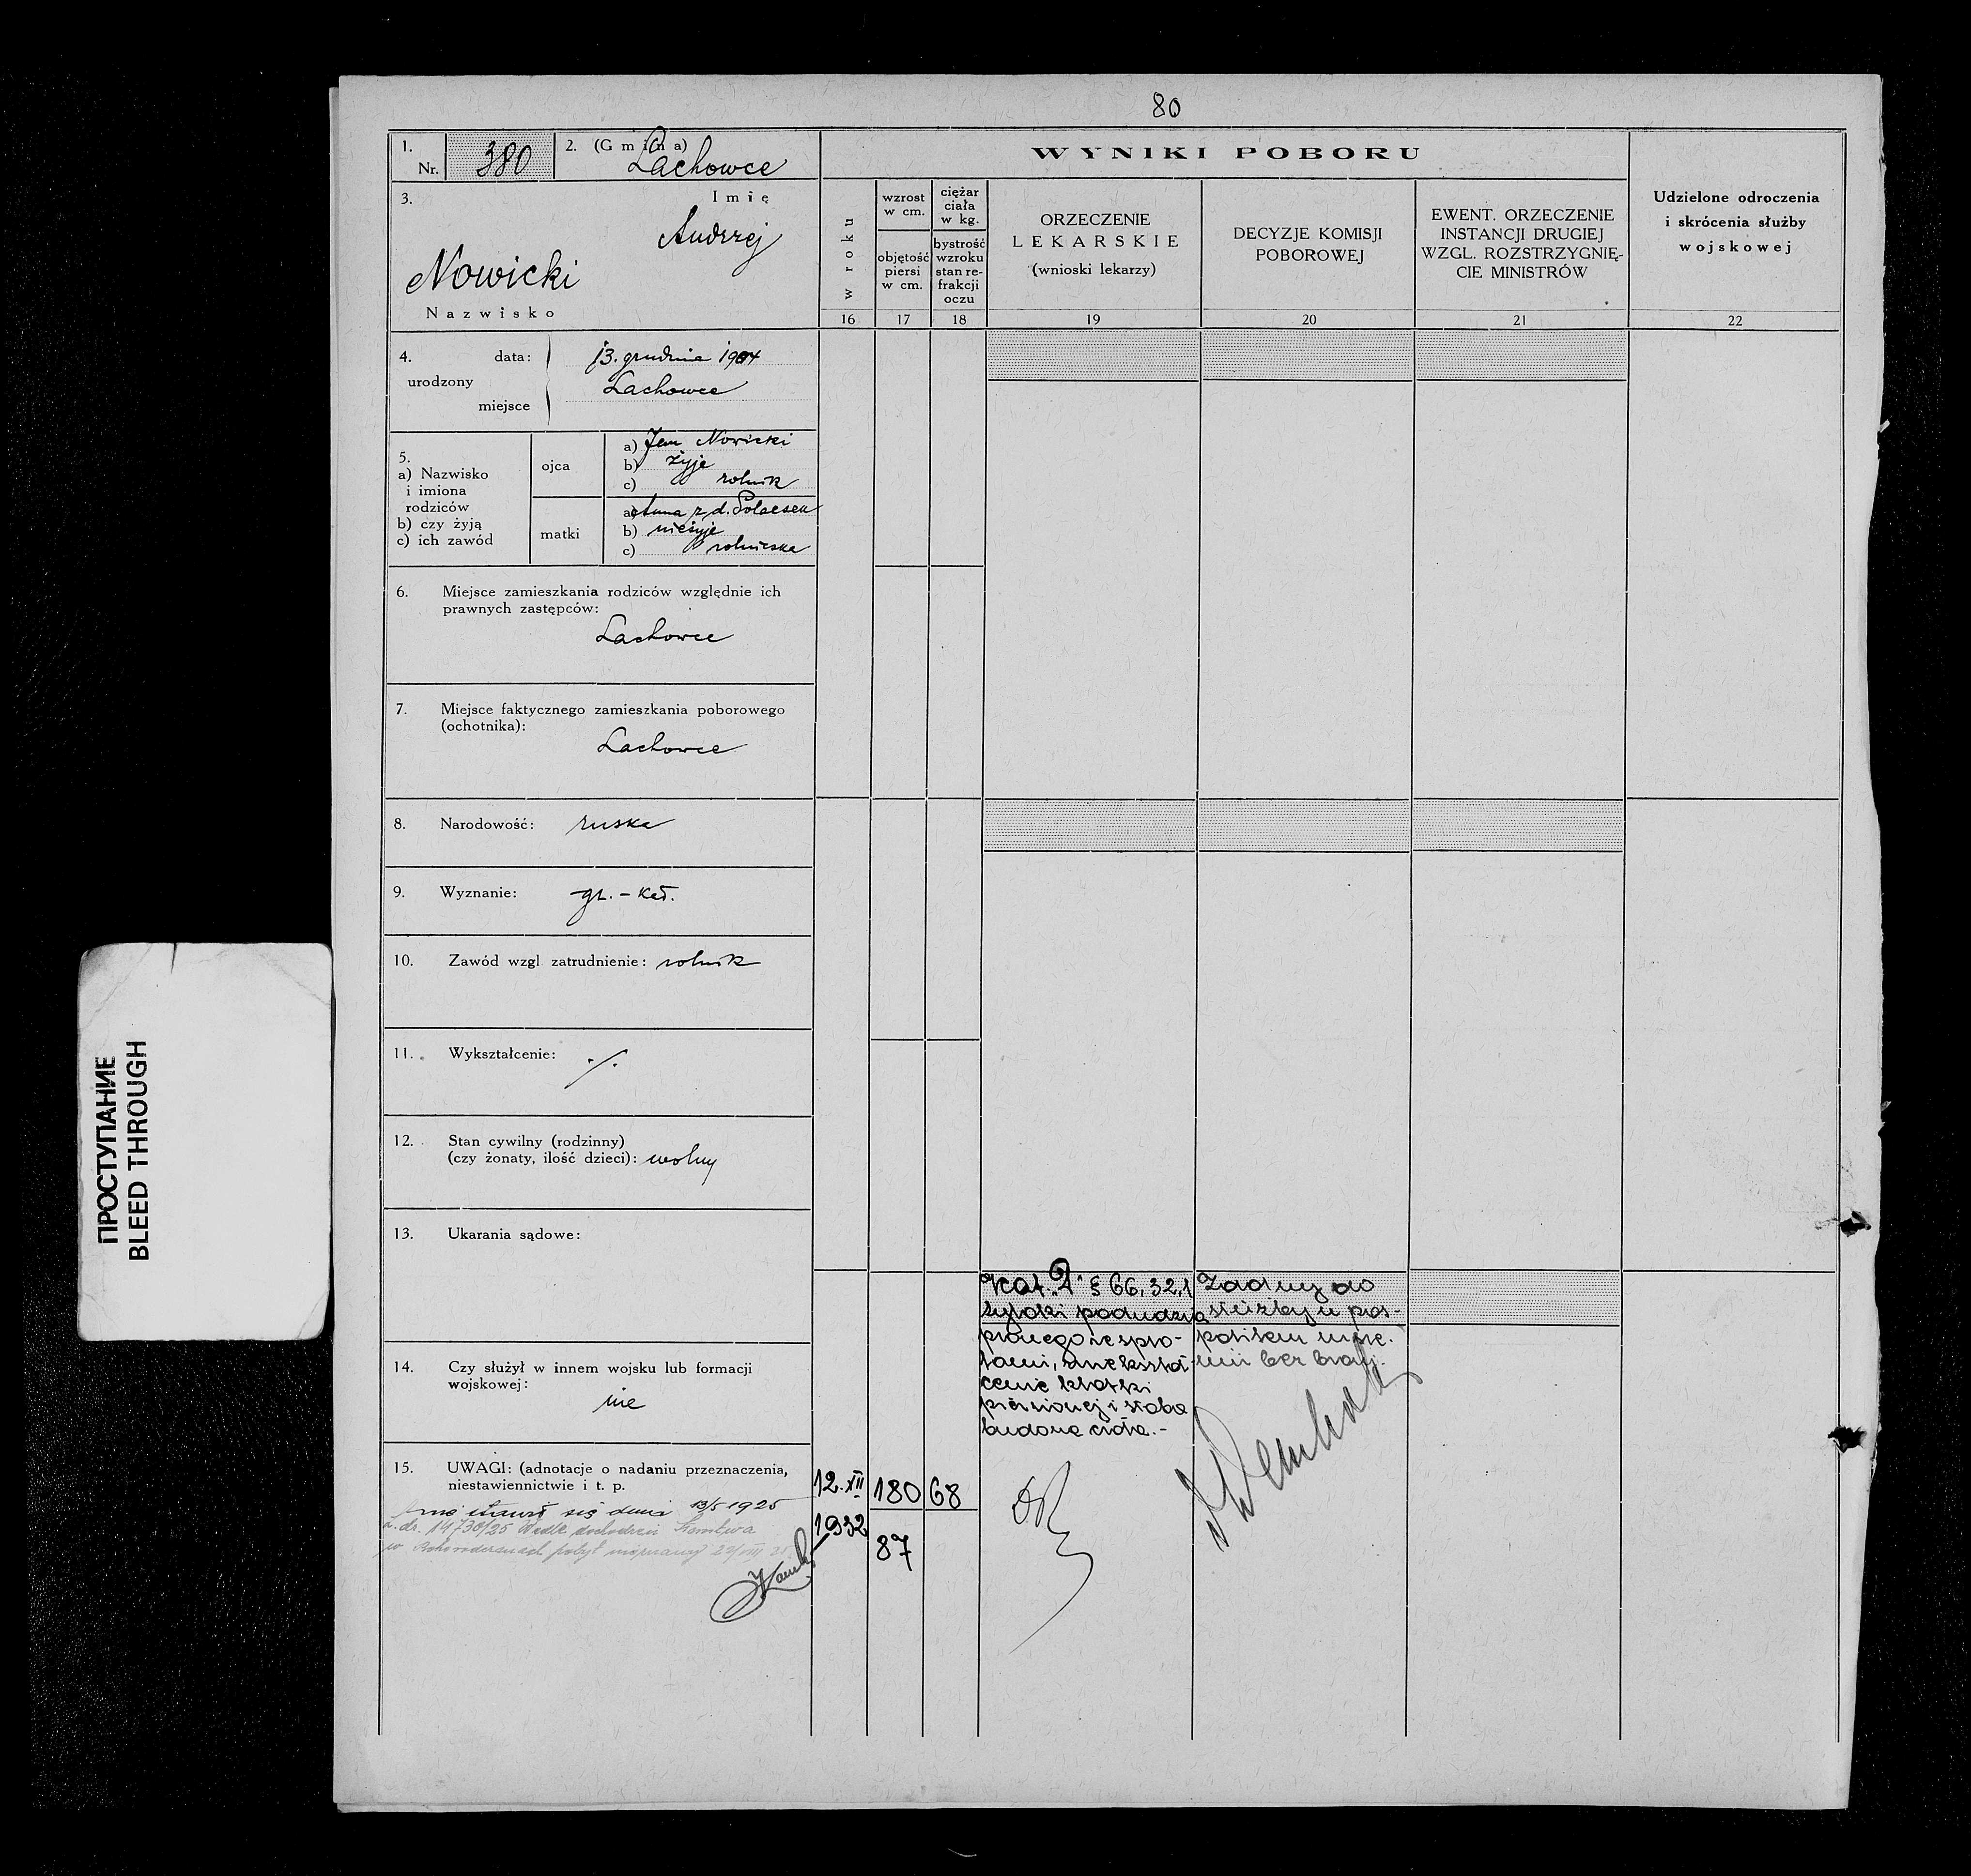 80
1. Nr. 380
2. (Gmina) Lachowce
3. Imię
Andrzej
Nowicki
Nazwisko
4. urodzony
data: 13. grudnia 1904
miejsce Lachowce
5.
a) Nazwisko
i imiona
rodziców
b) czy żyją
c) ich zawód
ojca
a) Jan Nowicki
b) żyje
c) rolnik
matki
a) Anna z d.
b) nieżyje
c) rolniczka
6. Miejsce zamieszkania rodziców względnie ich
prawnych zastępców:
Lachowce
7. Miejsce faktycznego zamieszkania poborowego
(ochotnika):
Lachowce
8. Narodowość: ruska
9. Wyznanie: gr.-kat.
10. Zawód wzgl. zatrudnienie: rolnik
11. Wykształcenie: ./.
12. Stan cywilny (rodzinny)
(czy żonaty, ilość dzieci): wolny
13. Ukarania sądowe:
14. Czy służył w innem wojsku lub formacji
wojskowej:
nie
15. UWAGI: (adnotacje o nadaniu przeznaczenia,
niestawiennictwie i t. p.
nie stawił się dnia 13/5 1925
WYNIKI POBORU
w roku
16
wzrost
w cm.
objętość
piersi
w cm.
17
ciężar
ciała
w kg.
bystrość
wzroku
stan re-
frakcji
oczu
18
ORZECZENIE
LEKARSKIE
(wnioski lekarzy)
19
DECYZJE KOMISJI
POBOROWEJ
20
EWENT. ORZECZENIE
INSTANCJI DRUGIEJ
WZGL. ROZSTRZYGNIĘ-
CIE MINISTRÓW
21
Udzielone odroczenia
i skrócenia służby
wojskowej
22
12.XII
1932
180
87
68
Kat. § 66, 32, 1
żylaki podudzia
prawego ze splo-
tami, zniekształ-
cenie klatki
piersiowej i słaba
budowa ciała.-
Zdolny do
służby w pos-
politem rusze-
niu bez broni.
ПРОСТУПАНИЕ
BLEED THROUGH